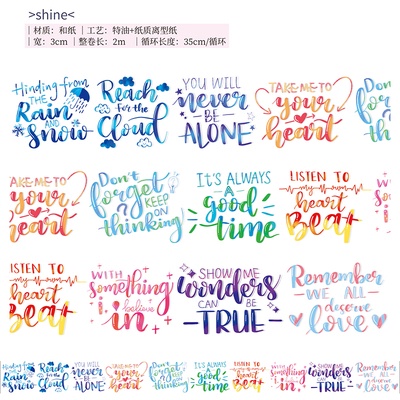 >shine<
｜材质：和纸｜工艺：特油+纸质离型纸
｜宽：3cm｜整卷长：2m ｜循环长度：35cm/循环
Hinding from
THE
Rain
and
Snow
Reach
For the
Cloud
YOU WILL
never
BE
ALONE
TAKE ME TO
your
heart
Don't
forget
TAKE ME TO
your
heart
Don't
forget
KEEP
ON
thinking
IT'S ALWAYS
A
good
time
LISTEN TO
my mom
heart
Beat
LISTEN TO
my mom
heart
Beat
WITH
something
I believe
in
SHOW ME
wonders
CAN BE
TRUE
Remember
WE ALL
deserve
love
Hinding from
THE
Rain
and
Snow
Reach
For the
Cloud
YOU WILL
never
BE
ALONE
TAKE ME TO
your
heart
Don't
forget
KEEP
ON
thinking
IT'S ALWAYS
good
time
LISTEN TO
heart
Beat
WITH
something
in
SHOW ME
wonders
CAN BE
TRUE
Remember
WE ALL
deserve
love